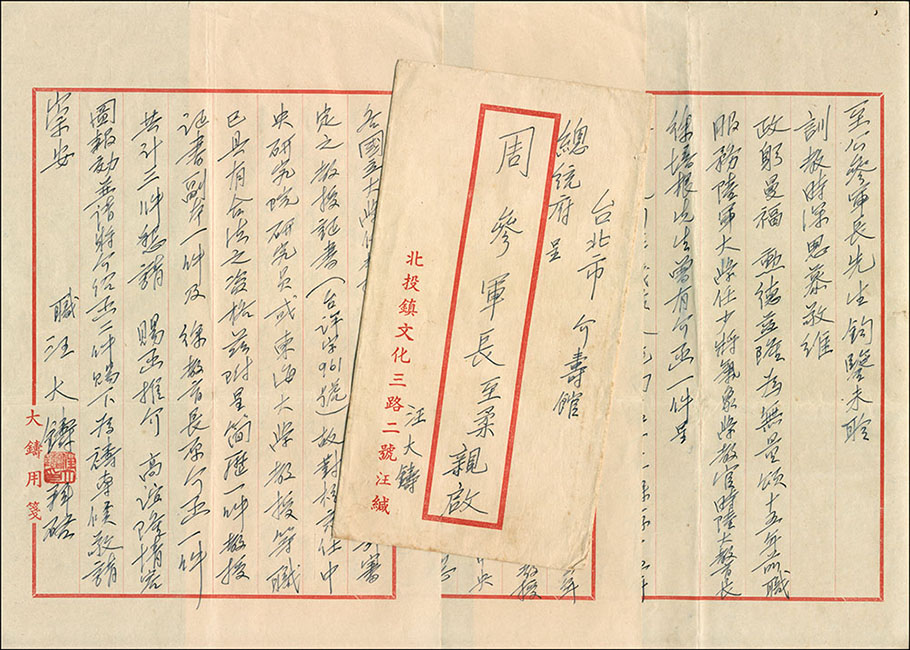 至公參軍長先生鈞鑒未聆
訓教時深思慕敬維
政躬曼福 勳德益隆為無量頌十五年前職
服務陸軍大學任少將氣象學教官時陸大教育長
徐培根先生曾有介函一件呈
台北市 介壽館
總統府呈
周參軍長至柔親啟
汪大鑄
北投鎮文化三路二號汪緘
教授
各國立大學
審
定之教授証書(台 字961號)故對於充任中
央研究院研究員或東海大學教授等職
已具有合法之資格茲附呈簡歷一件教授
証書副本一件及 徐教育長原介函一件
共計三件懇請 賜函推介 高誼隆情容
圖報効並請將介紹函二件賜下為禱專候敬請
崇安
職汪大鑄拜啟
大鑄用箋